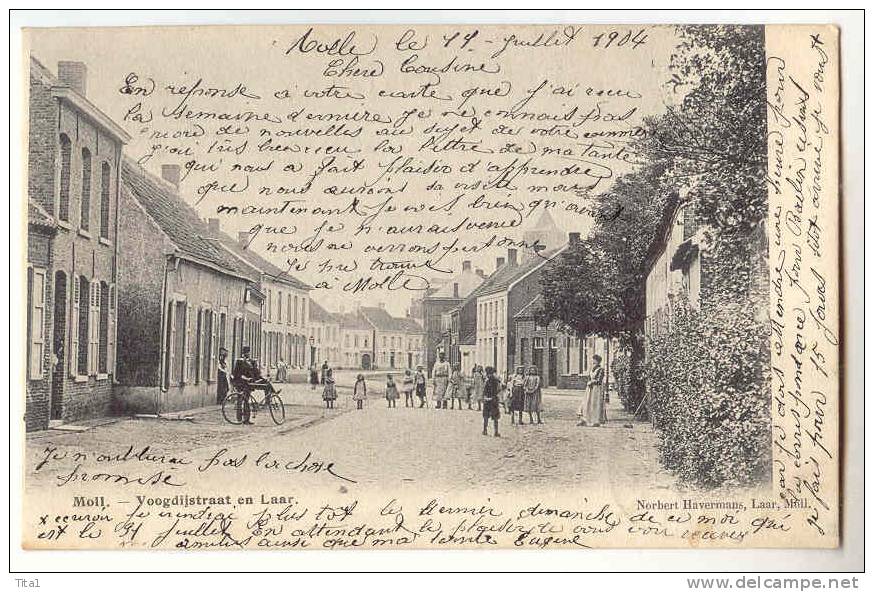 Molle le 11 - Juillet 1904
Chère Cousine
En réponse a votre carte que j'ai reçu
la semaine dernière je ne connais pas
encore de nouvelles au sujet de votre
j'ai très bien reçu la lettre de ma tante
qui nous a fait plaisir d'apprendre
que nous aurions sa visite mais
maintenant je vis bien qu'avant
que je n'aurais venue
nous ne verrons personne
je me trouve
a Molle
Je n'oublierai pas la chose
promise
Moll. — Voogdijstraat en Laar.
Norbert Havermans, Laar, Moll.
je reviendrai plus tôt le dernier dimanche de ce moi qui
est le 31 juillet En attendant le plaisir de vous voir recevez
amitiés ainsi que ma tante Eugène
car je dois attendre une heure pour
la correspondance pour
je fais pour 15 jours